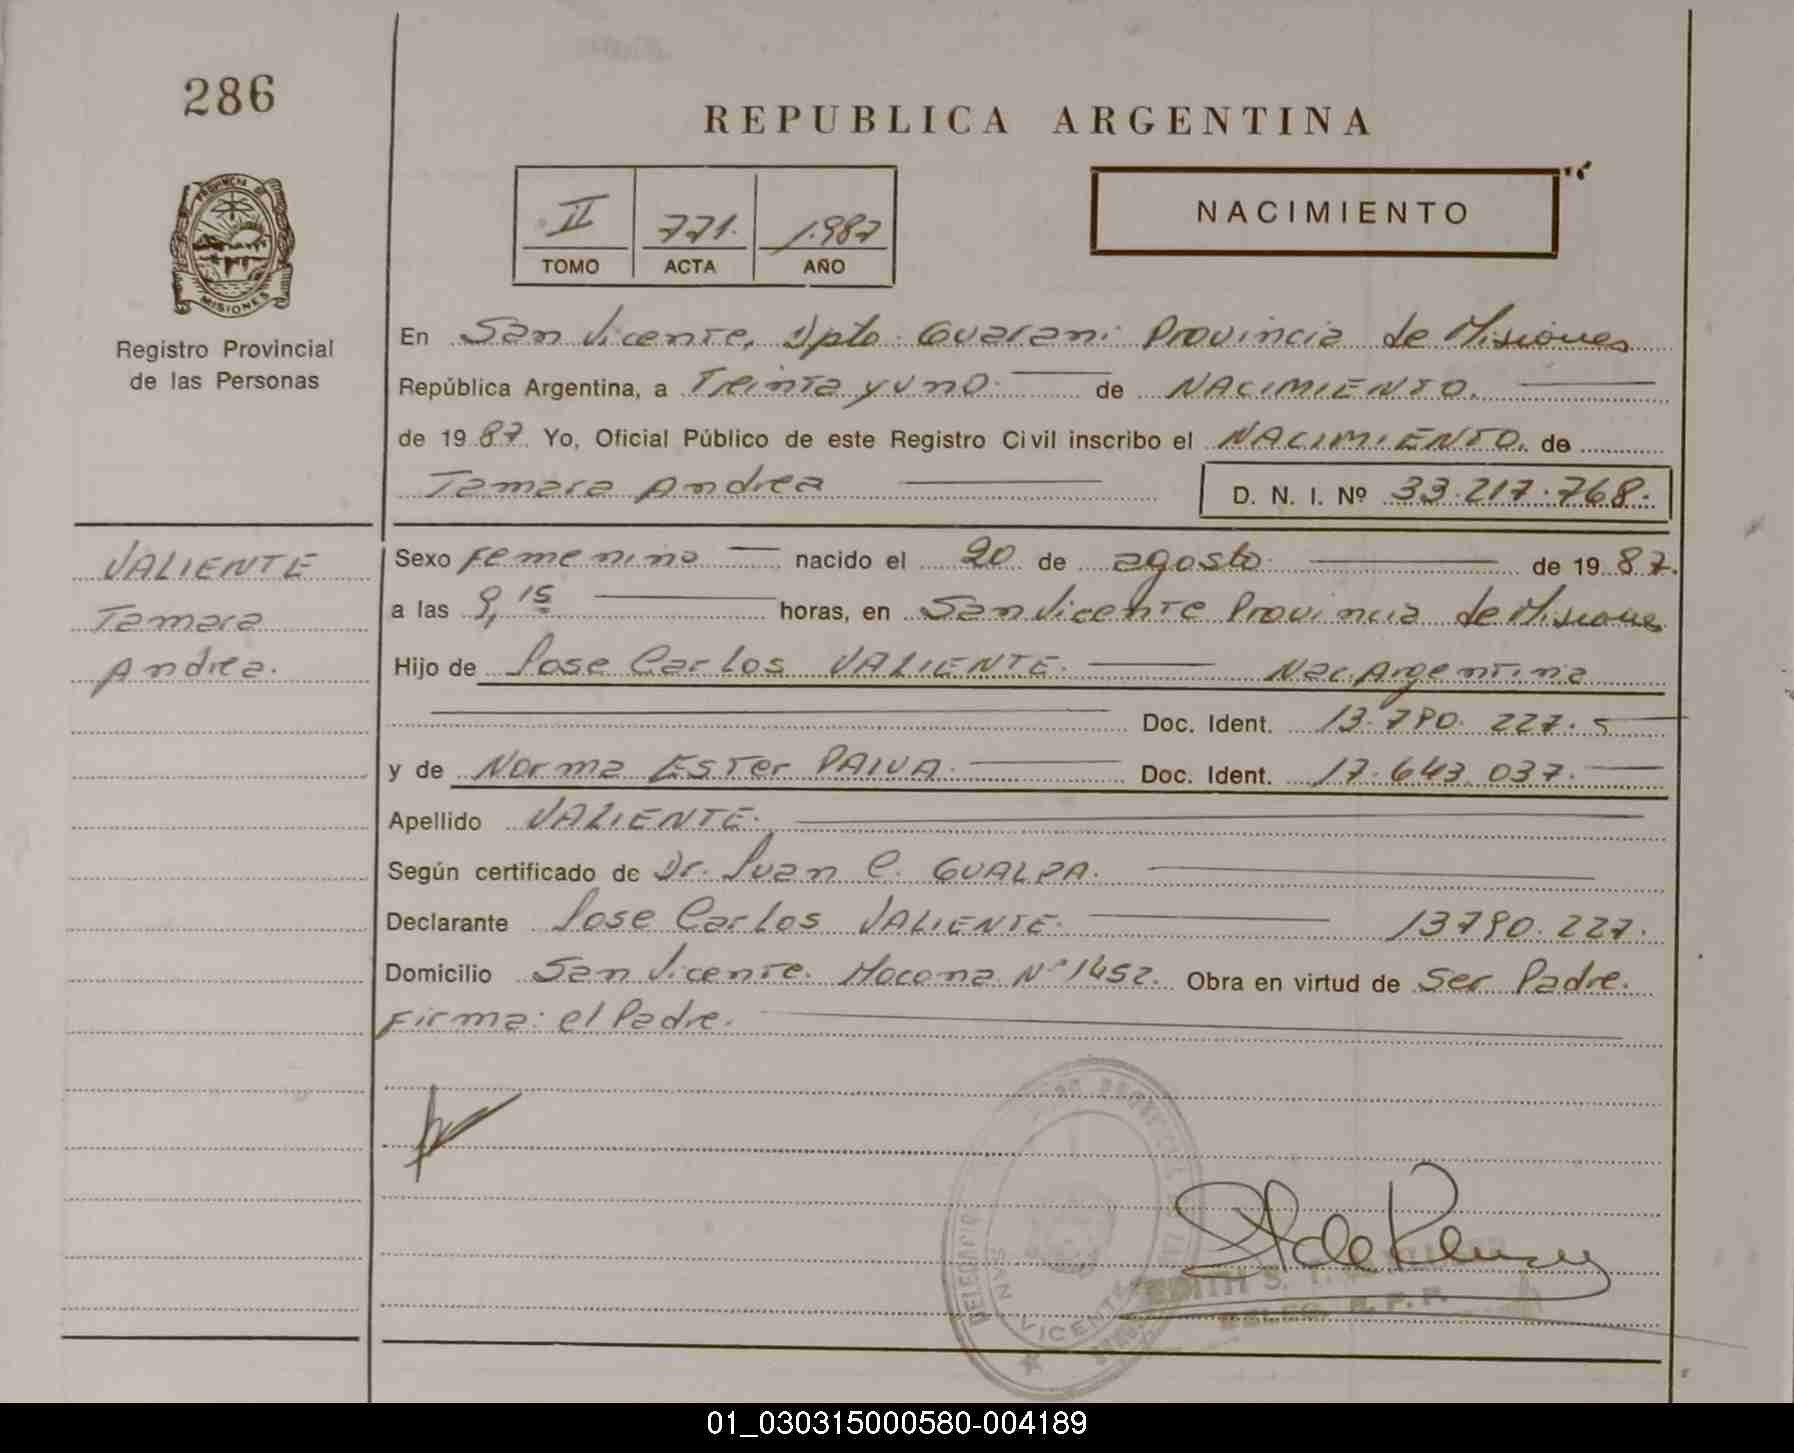 286
REPUBLICA ARGENTINA
II 771. 1.987
TOMO ACTA AÑO
NACIMIENTO
PROVINCIA DE
MISIONES
Registro Provincial
de las Personas
En San Vicente, Dpto. Guarani Provincia de Misiones
República Argentina, a Treinta y uno. de NACIMIENTO.
de 1987. Yo, Oficial Público de este Registro Civil inscribo el NACIMIENTO. de
Tamara Andrea D. N. I. Nº 33.217.768.
VALIENTE
Tamara
Andrea.
Sexo Femenino nacido el 20 de agosto de 1987.
a las 9,15 horas, en San Vicente Provincia de Misiones
Hijo de Jose Carlos VALIENTE. Nac. Argentina
Doc. Ident. 13.790.227.
y de Norma Ester PAIVA. Doc. Ident. 17.643.037.
Apellido VALIENTE.
Según certificado de Dr. Juan C. GUALPA.
Declarante Jose Carlos VALIENTE. 13790.227.
Domicilio San Vicente. Mocona Nº 1452. Obra en virtud de Ser Padre.
Firma: el Padre.
SAN VICENTE
EDITH S. T.
DELEG. R. P. P.
01_030315000580-004189